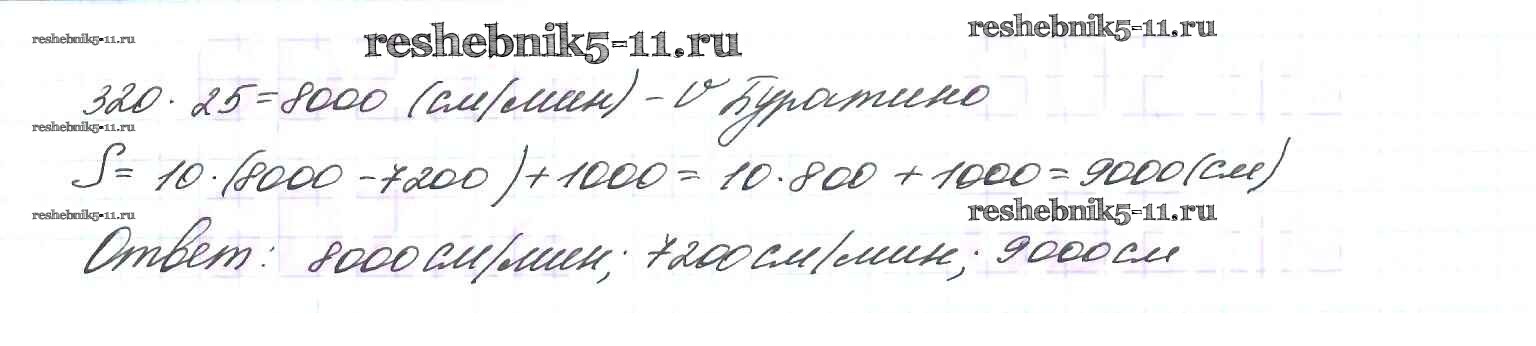 reshebnik5-11.ru reshebnik5-11.ru reshebnik5-11.ru
320 · 25 = 8000 (см/мин) - v Буратино
reshebnik5-11.ru
S = 10 · (8000 - 7200) + 1000 = 10 · 800 + 1000 = 9000 (см)
reshebnik5-11.ru reshebnik5-11.ru
Ответ: 8000 см/мин; 7200 см/мин; 9000 см